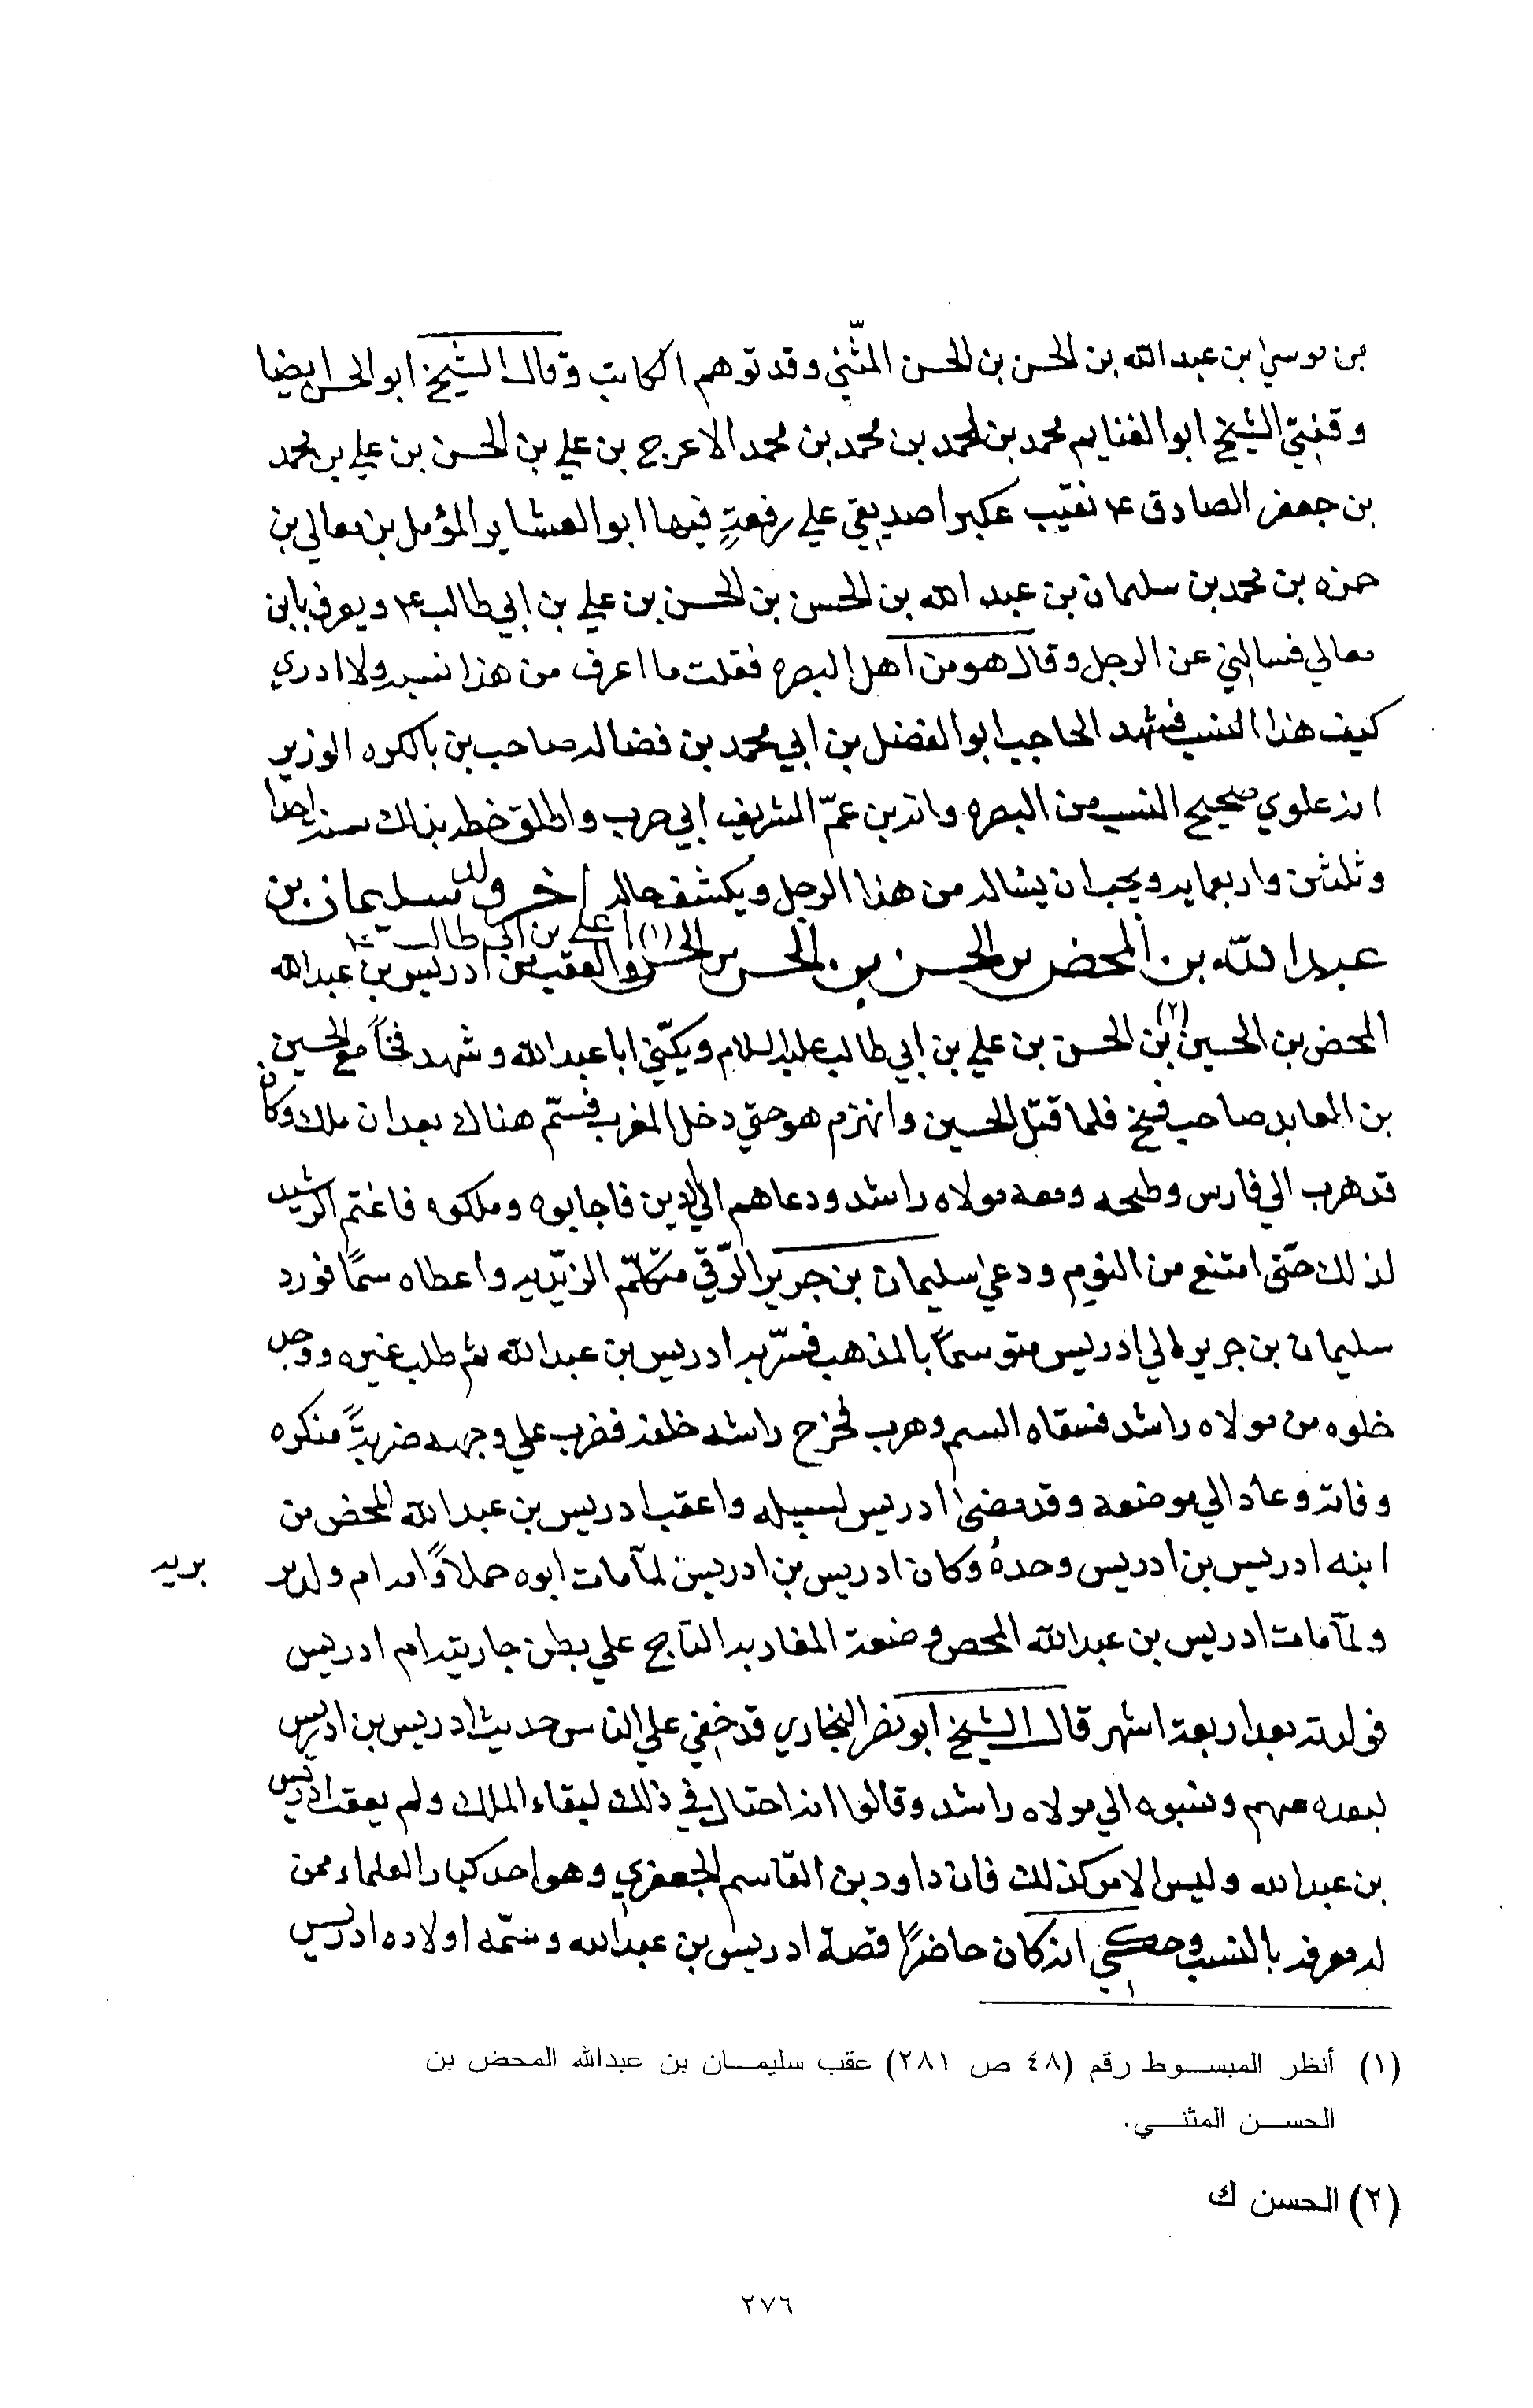 بن موسي ابن عبد الله بن الحسن بن الحسن المثّني وقد توهم الكاتب وقال الشيخ ابو الحسن ايضا
وقفني الشيخ ابو الغنايم محمد بن احمد بن محمد بن محمد الاعرج بن علي بن الحسن بن علي بن محمد
بن جعفر الصادق ع نقيب عكبرا صديقي علي رقعةٍ فيها ابو العشاير المؤمل بن معالي بن
حمزه بن محمد بن سليمان بن عبد الله بن الحسن بن الحسن بن علي بن ابي طالب ع ويعرف بابن
معالي فسالني عن الرجل وقال هو من اهل البصره فقلت ما اعرف من هذا نسبه ولا ادري
كيف هذا النسب فشهد الحاجب ابو الفضل بن ابي محمد بن فضاله صاحب بن باكره الوزير
انه علوي صحيح النسب من البصره وانه بن عمّ الشريف ابي حرب واطلق خطه بذلك سنه احدا
وثلثن واربعمايه ويجب ان يسًال من هذا الرجل ويكشف حاله اخر ولد سليمان بن
عبد الله بن المحض بن الحسن بن الحسن بن الحسن (١) علي بن ابي طالب ع والعقب من ادريس بن عبدالله
المحض بن الحسين (٢) بن الحسن بن علي بن ابي طالب عليه السلام ويكنّي ابا عبدالله وشهد فخاً مع الحسين
بن العابد صاحب فخ فلما قتل الحسين وانهزم هو حتي دخل المغرب فسّم هناك بعد ان ملك وكان
قد هرب الي فارس وطنجه ومعه مولاه راشد ودعاهم الي الدين فاجابوه وملكوه فاغتم الرشيد
لذلك حتّى امتنع من النوم ودعي سليمان بن جرير الرّقي متكلّم الزيّديه واعطاه سمّا فورد
سليمان بن جرير الي ادريس متوسماً بالمذهب فسّر به ادريس بن عبدالله ثم طلب غيره ووجد
خلوه من مولاه راشد فسقاه السم وهرب فخرج راشد خلفه فضرب علي وجهه ضربةً منكره
وفاته وعاد الي موضعه وقد مضى ادريس لسبيله واعقب ادريس بن عبدالله المحض من
ابنه ادريس بن ادريس وحدهُ وكان ادريس بن ادريس لمّا مات ابوه حملاً وامه ام ولد بربر بريد
ولمّا مات ادريس بن عبدالله المحض وضعة المغاربه التاج علي بطن جاريته ام ادريس
فولدته بعد اربعة اشهر قال الشيخ ابو نصر البخاري قد خفي علي الناس حديث ادريس بن ادريس
لبعده عنهم ونسبوه الي مولاه راشد وقالوا انه احتال في ذلك لبقاء الملك ولم يعقب ادريس
بن عبدالله وليس الامر كذلك فان داود بن القاسم الجعفري وهو احد كبار العلماء ممن
له معرفه بالنسب وحكي انه كان حاضراً قصة ادريس بن عبدالله وسّمه اولاده ادريس
(١) أنظر المبسوط رقم (٤٨ ص ٢٨١) عقب سليمان بن عبدالله المحض بن
الحسن المثنى.
(٢) الحسن ك
٢٧٦